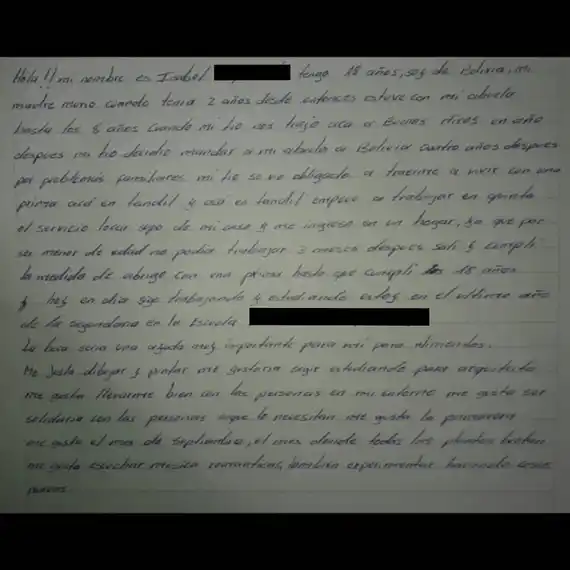 Hola!! mi nombre es Isabel tengo 18 años, soy de Bolivia, mi
madre murio cuando tenia 2 años desde entonces estuve con mi abuela
hasta los 8 años cuando mi tio nos trajo aca a Buenos Aires un año
despues mi tio decidio mandar a mi abuela a Bolivia cuatro años despues
por problemas familiares mi tio se vio obligado a traerme a vivir con una
prima acá en tandil y acá en tandil empece a trabajar en quinta
el servicio local supo de mi caso y me ingreso en un hogar, ya que por
ser menor de edad no podia trabajar 3 meses despues sali y cumpli
la medida de abrigo con una prima hasta que cumpli 18 años
y hoy en dia sigo trabajando y estudiando estoy en el ultimo año
de la segundaria en la Escuela
La beca seria una ayuda muy importante para mi para alimentos.
Me gusta dibujar y pintar me gustaria seguir estudiando para arquitecta
me gusta llevarme bien con las personas en mi entorno me gusta ser
solidaria con las personas que lo necesitan me gusta la primavera
me gusta el mes de septiembre, el mes donde todas las plantas brotan
me gusta escuchar musica romanticas, también experimentar haciendo cosas
nuevas